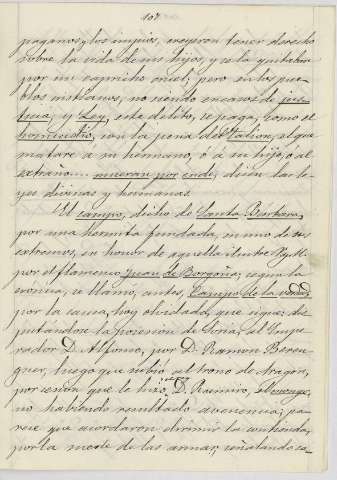 107
paganos y los impíos, creyeron tener derecho
sobre la vida de sus hijos, y se la quitaban
por un capricho cruel; pero en los pue-
blos cristianos, no siendo en casos de jus-
ticia, y Ley, este delito, se paga, como el
homicidio, con la pena del Talion, al que
matare a su hermano, ó á su hijo, ó al
extraño.... mueran por ende, dicen las le-
yes divinas y humanas.
El campo, dicho de Santa Bárbara,
por una hermita fundada, en uno de sus
extremos, en honor de aquella ilustre
por el flamenco Juan de Borgoña, segun la
cronica, se llamó, antes, Campo de la verdad,
por la causa, hoy olvidada, que sigue: dis-
putandose la posesion de Soria, el Empe-
rador D. Alfonso, por D. Ramon Beren-
guer, luego que subió al trono de Aragón,
por cesión que le hizo D. Ramiro, el monge,
no habiendo resultado avenencia; pa-
rece que acordaron dirimir la contienda,
por la suerte de las armas, señalando ca-